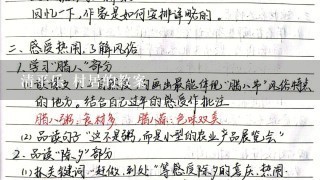 回忆一下,作家是如何安排详略的。
二、感受热闹,了解风俗
1.学习"腊八"部分
清平乐 村居的教案
画出最能体现"腊八节"风俗特点
的地方。结合自己过年的感受作批注
腊八粥:食材多 腊八蒜:色味双美
(2)品读句子"这不是粥,而是小型的农业产品展览会"
2.品读"除夕"部分
(1)抓关键词:"赶做、到处"等感受除夕的喜庆、热闹